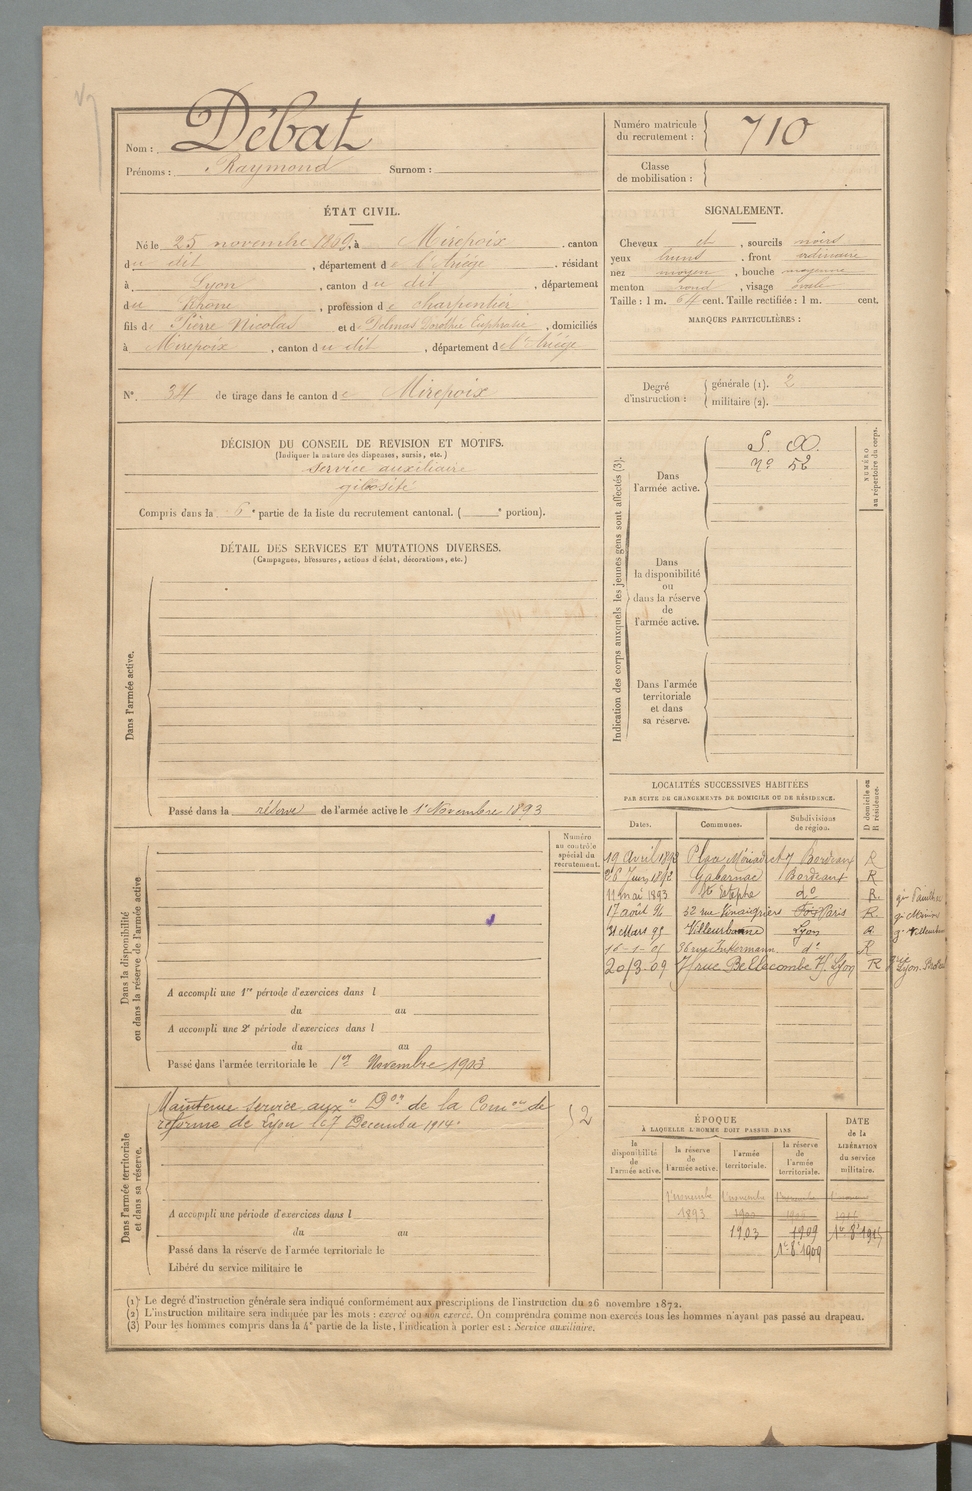 Nom : Débat
Prénoms : Raymond Surnom :
Numéro matricule du recrutement : 710
Classe de mobilisation :
ÉTAT CIVIL.
Né le 25 novembre 1869, à Mirepoix, canton
du dit, département de l'Ariège, résidant
à Lyon, canton du dit, département
du Rhone, profession de charpentier
fils de Pierre Nicolas et de Delmas Dorothée Euphrasie, domiciliés
à Mirepoix, canton du dit, département de l'Ariège
N° 34 de tirage dans le canton de Mirepoix
SIGNALEMENT.
Cheveux et, sourcils noirs
yeux bruns, front ordinaire
nez moyen, bouche moyenne
menton rond, visage ovale
Taille : 1 m. 64 cent. Taille rectifiée : 1 m. cent.
MARQUES PARTICULIÈRES :
Degré d'instruction : générale (1). 2
militaire (2).
DÉCISION DU CONSEIL DE REVISION ET MOTIFS.
(Indiquer la nature des dispenses, sursis, etc.)
service auxiliaire
gibosité
Compris dans la e partie de la liste du recrutement cantonal. ( e portion).
DÉTAIL DES SERVICES ET MUTATIONS DIVERSES.
(Campagnes, blessures, actions d'éclat, décorations, etc.)
Dans l'armée active.
Passé dans la réserve de l'armée active le 1er Novembre 1893
Indication des corps auxquels les jeunes gens sont affectés (3).
Dans l'armée active.
S. A.
n° 52
NUMÉRO au répertoire du corps.
Dans la disponibilité ou dans la réserve de l'armée active.
Dans l'armée territoriale et dans sa réserve.
LOCALITÉS SUCCESSIVES HABITÉES
PAR SUITE DE CHANGEMENTS DE DOMICILE OU DE RÉSIDENCE.
Dates. Communes. Subdivisions de région. D domicile ou R résidence.
19 Avril 1892 Place Mériadeck 7 Bordeaux R
28 Juin 1892 Gabarnac Bordeaux R
11 mai 1893 St Estèphe d° R.
17 août 94 32 rue Vinaigriers Foix Paris R
31 Mars 95 Villeurbanne Lyon R
16-1-01 36 rue Inkermann d° R
20/2-09 7 rue Bellecombe Lyon R
Numéro au contrôle spécial du recrutement.
Dans la disponibilité ou dans la réserve de l'armée active
A accompli une 1re période d'exercices dans l
du au
A accompli une 2e période d'exercices dans l
du au
Passé dans l'armée territoriale le 1er Novembre 1903
Dans l'armée territoriale et dans sa réserve.
Maintenu service auxre Don de la Comon de
réforme de Lyon le 7 Décembre 1914.
52
A accompli une période d'exercices dans l
du au
Passé dans la réserve de l'armée territoriale le
Libéré du service militaire le
ÉPOQUE
À LAQUELLE L'HOMME DOIT PASSER DANS
DATE de la LIBÉRATION du service militaire.
la disponibilité de l'armée active. la réserve de l'armée active. l'armée territoriale. la réserve de l'armée territoriale.
1er novembre 1er novembre 1er novembre
1893
1903 1909
1er 8e 1909
(1) Le degré d'instruction générale sera indiqué conformément aux prescriptions de l'instruction du 26 novembre 1872.
(2) L'instruction militaire sera indiquée par les mots : exercé ou non exercé. On comprendra comme non exercés tous les hommes n'ayant pas passé au drapeau.
(3) Pour les hommes compris dans la 4e partie de la liste, l'indication à porter est : Service auxiliaire.